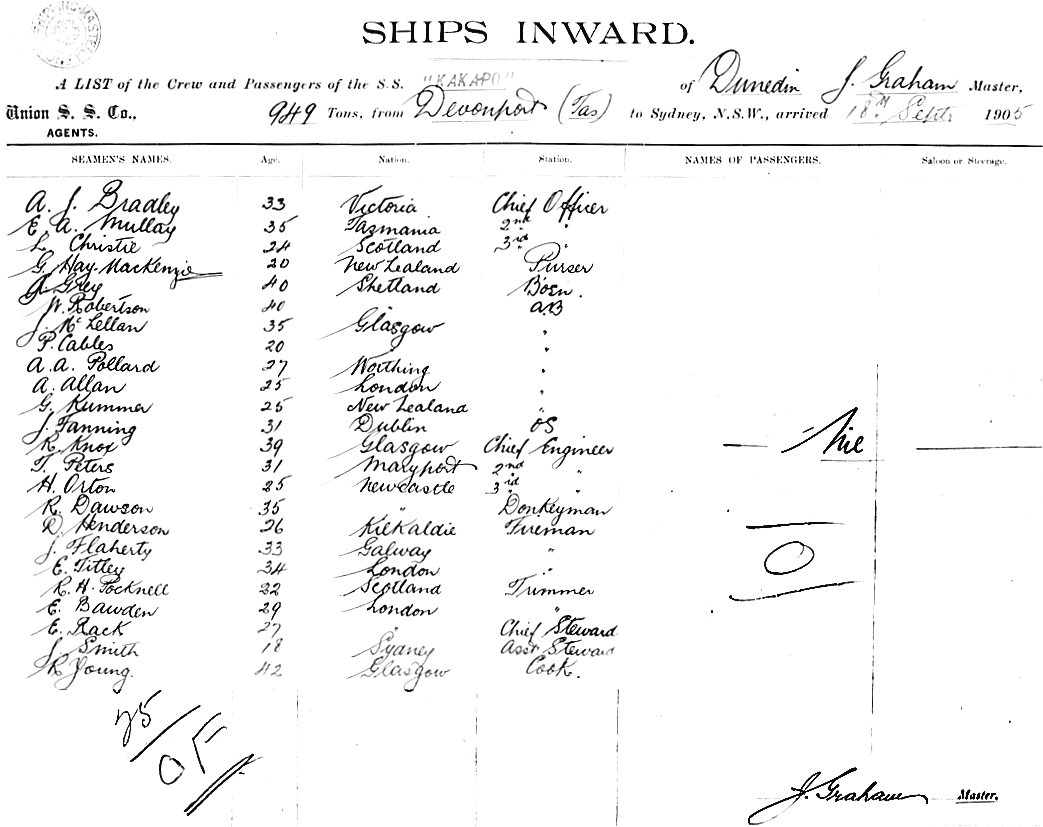 SHIPPING MASTER
SHIPS INWARD.
A LIST of the Crew and Passengers of the S.S. "KAKAPO" of Dunedin J. Graham Master,
Union S. S. Co., 949 Tons, from Devonport (Tas) to Sydney, N.S.W., arrived 18th Septr 1905
AGENTS.
SEAMEN'S NAMES. Age. Nation. Station. NAMES OF PASSENGERS. Saloon or Steerage.
A. J. Bradley 33 Victoria Chief Officer
E. A. Mullay 35 Tasmania 2nd "
L. Christie 24 Scotland 3rd "
G. Hay-MacKenzie 20 New Zealand Purser
A. Grey 40 Shetland Bosn.
W. Robertson 40 " AB
J. McLellan 35 Glasgow "
P. Cables 20 " "
A. A. Pollard 27 Worthing "
A. Allan 25 London "
G. Kummer 25 New Zealand "
J. Fanning 31 Dublin OS
R. Knox 39 Glasgow Chief Engineer — Nil —
T. Peters 31 Maryport 2nd "
H. Orton 25 Newcastle 3rd "
R. Dawson 35 " Donkeyman
D. Henderson 26 Kilkaldie Fireman
J. Flaherty 33 Galway " O
E. Titley 34 London "
R. H. Pocknell 22 Scotland Trimmer
E. Bawden 29 London "
E. Rack 27 " Chief Steward
J. Smith 18 Sydney Asst Steward
R. Young. 42 Glasgow Cook.
25/OF
J. Graham Master.